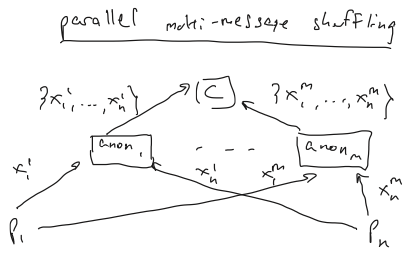 parallel multi-message shuffling
{x₁¹,...,xₙ¹} C {x₁ᵐ,...,xₙᵐ}
anon₁ - - - anonₘ
x₁¹ xₙ¹ x₁ᵐ xₙᵐ
P₁ Pₙ